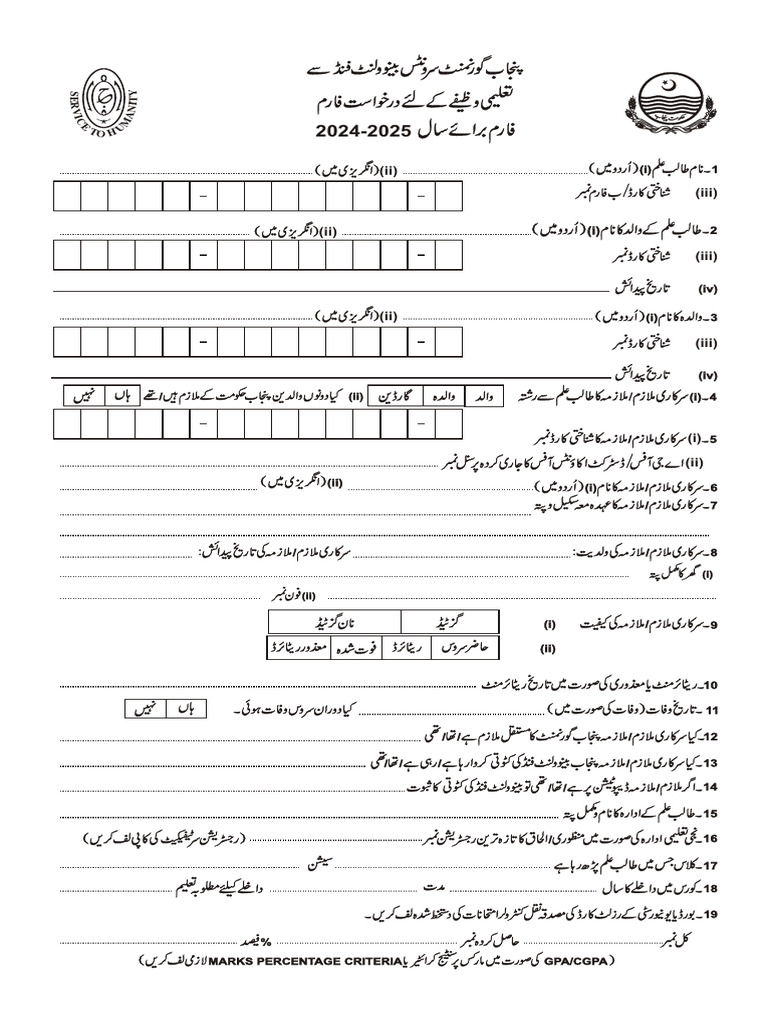 پنجاب گورنمنٹ سرونٹس بینوولنٹ فنڈ سے
تعلیمی وظیفے کے لئے درخواست فارم
فارم برائے سال 2024-2025
SERVICE TO HUMANITY
حکومت پنجاب
1۔ نام طالب علم (i) (اُردو میں) (ii) (انگریزی میں)
(iii) شناختی کارڈ/ب فارم نمبر
2۔ طالب علم کے والد کا نام (i) (اُردو میں) (ii) (انگریزی میں)
(iii) شناختی کارڈ نمبر
(iv) تاریخ پیدائش
3۔ والدہ کا نام (i) (اُردو میں) (ii) (انگریزی میں)
(iii) شناختی کارڈ نمبر
(iv) تاریخ پیدائش
4۔ (i) سرکاری ملازم/ملازمہ کا طالب علم سے رشتہ والد والدہ گارڈین (ii) کیا دونوں والدین پنجاب حکومت کے ملازم ہیں/تھے ہاں نہیں
5۔ (i) سرکاری ملازم/ملازمہ کا شناختی کارڈ نمبر
(ii) اے جی آفس/ڈسٹرکٹ اکاؤنٹس آفس کا جاری کردہ پرسنل نمبر
6۔ سرکاری ملازم/ملازمہ کا نام (i) (اُردو میں) (ii) (انگریزی میں)
7۔ سرکاری ملازم/ملازمہ کا عہدہ معہ سکیل و پتہ
8۔ سرکاری ملازم/ملازمہ کی ولدیت: سرکاری ملازم/ملازمہ کی تاریخ پیدائش:
(i) گھر کا مکمل پتہ
(ii) فون نمبر
9۔ سرکاری ملازم/ملازمہ کی کیفیت (i) گزٹیڈ نان گزٹیڈ
(ii) حاضر سروس ریٹائرڈ فوت شدہ معذور ریٹائرڈ
10۔ ریٹائرمنٹ یا معذوری کی صورت میں تاریخ ریٹائرمنٹ
11۔ تاریخ وفات (وفات کی صورت میں) کیا دوران سروس وفات ہوئی۔ ہاں نہیں
12۔ کیا سرکاری ملازم/ملازمہ پنجاب گورنمنٹ کا مستقل ملازم ہے/تھا/تھی
13۔ کیا سرکاری ملازم/ملازمہ پنجاب بینوولنٹ فنڈ کی کٹوتی کروا رہا ہے/رہی ہے/تھا/تھی
14۔ اگر ملازم/ملازمہ ڈیپوٹیشن پر ہے/تھا/تھی تو بینوولنٹ فنڈ کی کٹوتی کا ثبوت
15۔ طالب علم کے ادارہ کا نام و مکمل پتہ
16۔ نجی تعلیمی ادارہ کی صورت میں منظوری/الحاق کا تازہ ترین رجسٹریشن نمبر (رجسٹریشن سرٹیفیکیٹ کی کاپی لف کریں)
17۔ کلاس جس میں طالب علم پڑھ رہا ہے سیشن
18۔ کورس میں داخلے کا سال مدت داخلے کیلئے مطلوبہ تعلیم
19۔ بورڈ یا یونیورسٹی کے رزلٹ کارڈ کی مصدقہ نقل کنٹرولر امتحانات کی دستخط شدہ لف کریں۔
کل نمبر حاصل کردہ نمبر % فیصد
(GPA/CGPA کی صورت میں مارکس پرسنٹیج کرائٹیریا MARKS PERCENTAGE CRITERIA لازمی لف کریں)